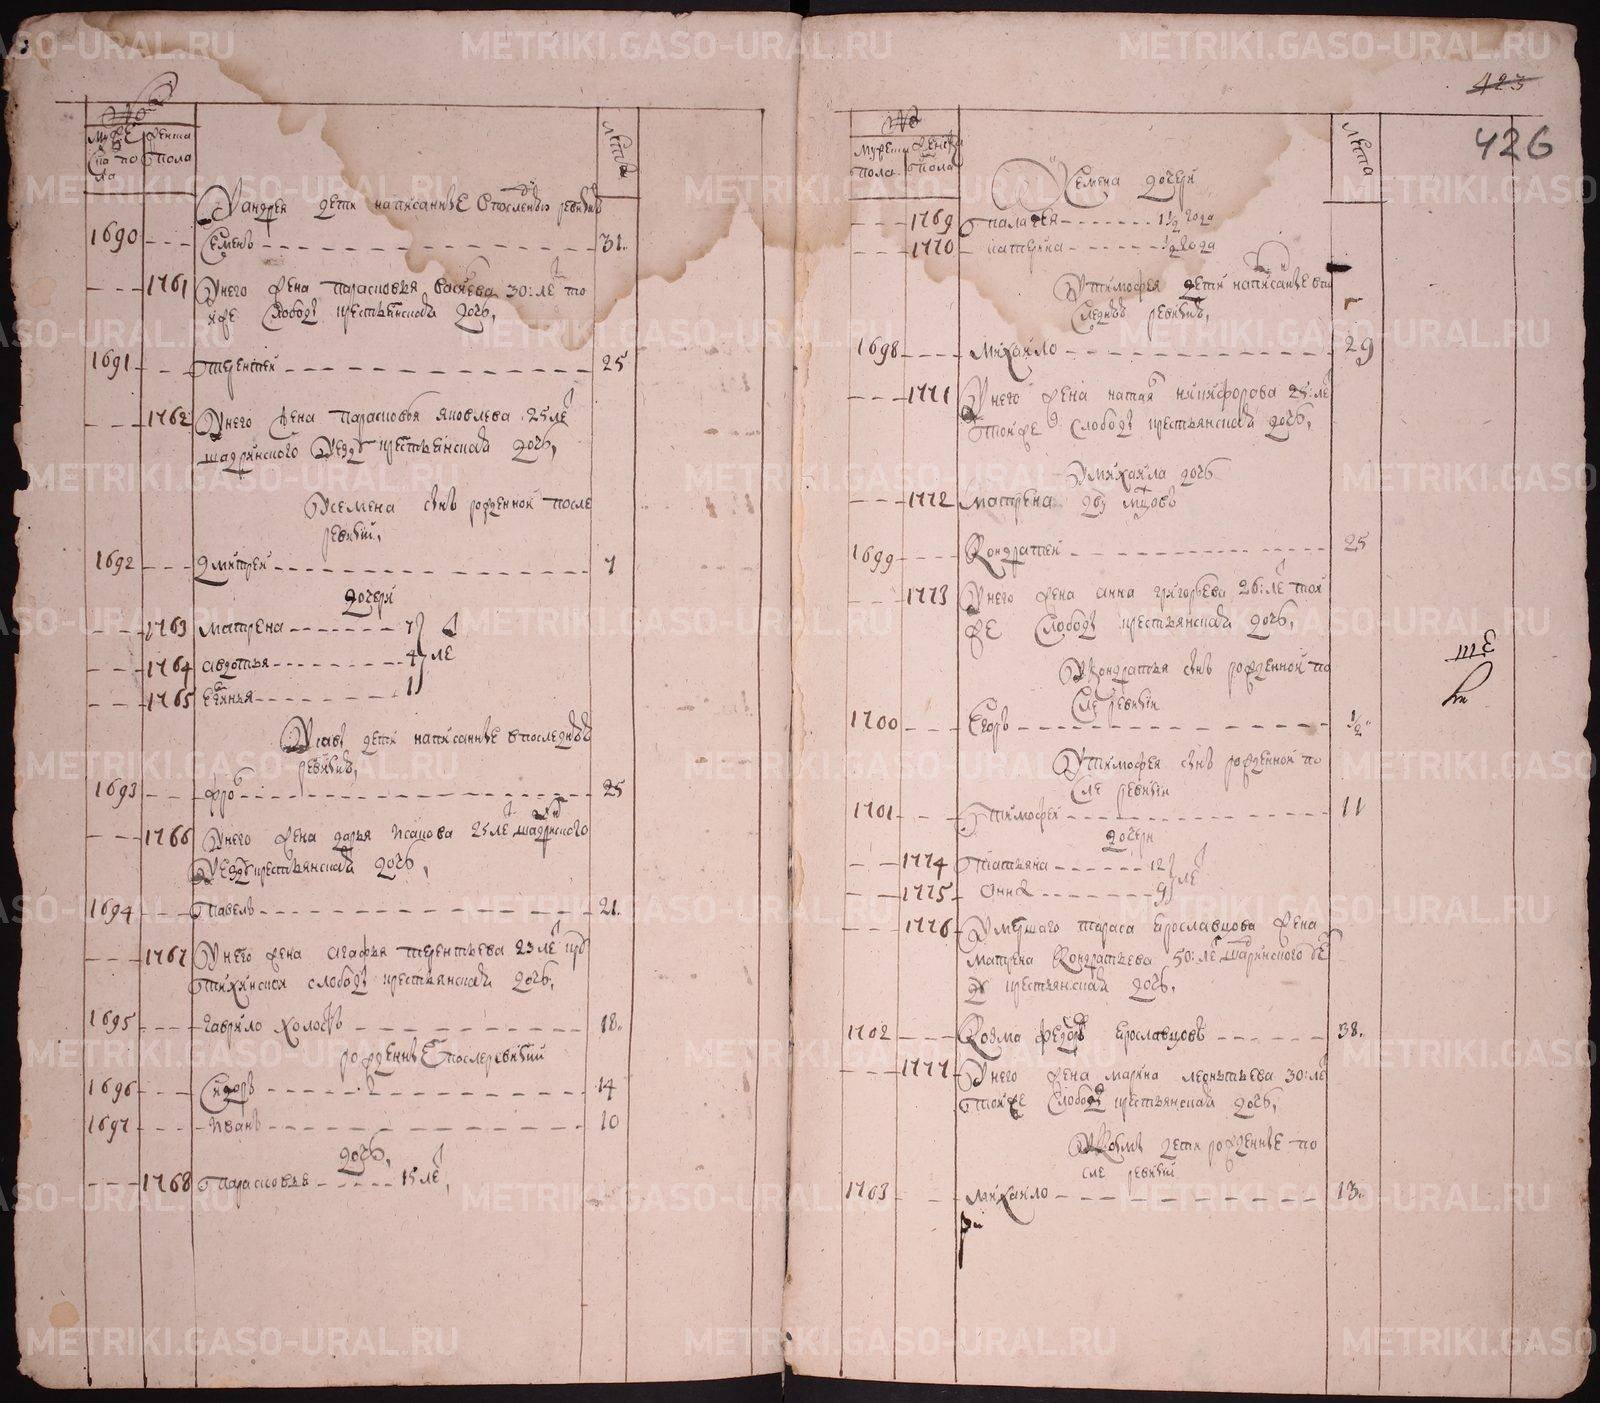 №
мужеска пола
женска пола
лета
У андрея дети написанные в последней ревизии
1690 Семенъ 31
1761 У него жена парасковья васиева 30: ле то
й же слободы крестьянская дочь,
1691 терентей 25
1762 У него жена парасковья яковлева 25 ле
шадринского уезду крестьянская дочь,
У семена сынъ рожденной после
ревизии,
1692 дмитрей 7
дочери
1763 матрена 7
1764 авдотья 4 ле
1765 1
дети написанные в последней
ревизии,
1693 фро 25
1766 У него жена дарья исакова 25 ле шадринского
уезду крестьянская дочь,
1694 павелъ 21
1767 У него жена агафья терентьева 23 ле
слободы крестьянская дочь,
1695 гаврило холостъ 18
рожденные после ревизии
1696 Сидоръ 14
1697 иванъ 10
дочь,
1768 парасковье 15 ле,
423
426
№
мужеска пола
женска пола
лета
У Семена дочери
1769 палагея 1 1/2 года
1770 катерина 1/2 года
У тимофея дети написанные в по
следней ревизии,
1698 михаило 29
1771 У него жена наталья никифорова 25: ле
той же слободы крестьянская дочь,
У михаила дочь
1772 матрена дву мцовъ
1699 Кондратей 25
1773 У него жена анна григорьева 26: ле той
же слободы крестьянская дочь,
У Кондратья сынъ рожденной по
сле ревизии
1700 Егоръ 1/2
У тимофея сынъ рожденной по
сле ревизии
1701 тимофей 11
дочери
1774 татьяна 12
1775 анна 9 ле
1776 Умершаго тараса ерославцова жена
матрена Кондратьева 50: ле шадринского уез
ду крестьянская дочь,
1702 Козма федоровъ ерославцовъ 38
1777 У него жена марина леонтьева 30: ле
той же слободы крестьянская дочь,
У Козмы дети рожденные по
сле ревизии
1703 михаило 13
METRIKI.GASO-URAL.RU